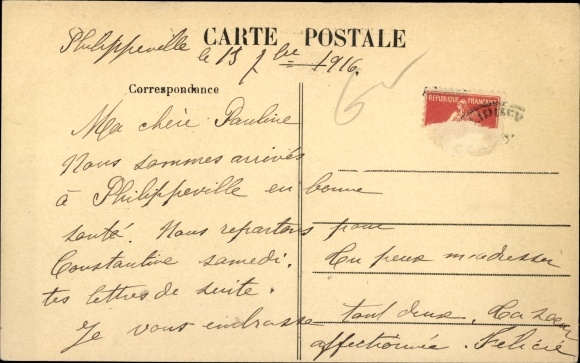 CARTE POSTALE
Philippeville le 13 7bre 1916.
Correspondance
RÉPUBLIQUE FRANÇAISE
Ma chère Pauline
Nous sommes arrivés
à Philippeville en bonne
santé. Nous repartons pour
Constantine samedi. Tu peux m'adresser
tes lettres de suite.
Je vous embrasse tout deux. Ta soeur
affectionnée. Félicie